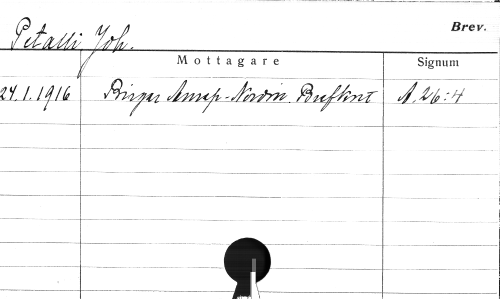 Brev.
Petalli, Joh.
Mottagare Signum
24.1.1916 Birger Nordin. Brefkort A. 26:4